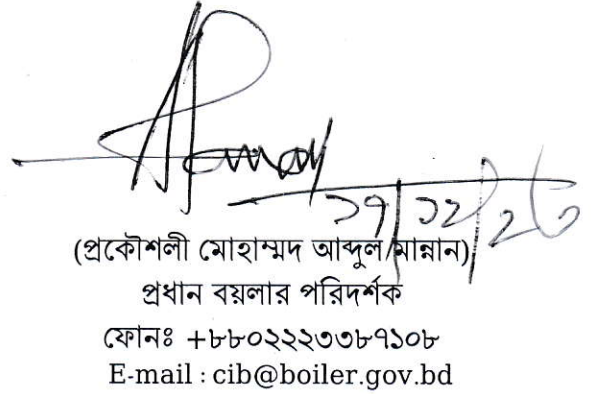 ১৭/১২/২৩
(প্রকৌশলী মোহাম্মদ আব্দুল মান্নান)
প্রধান বয়লার পরিদর্শক
ফোনঃ +৮৮০২২২৩৩৮৭১০৮
E-mail : cib@boiler.gov.bd